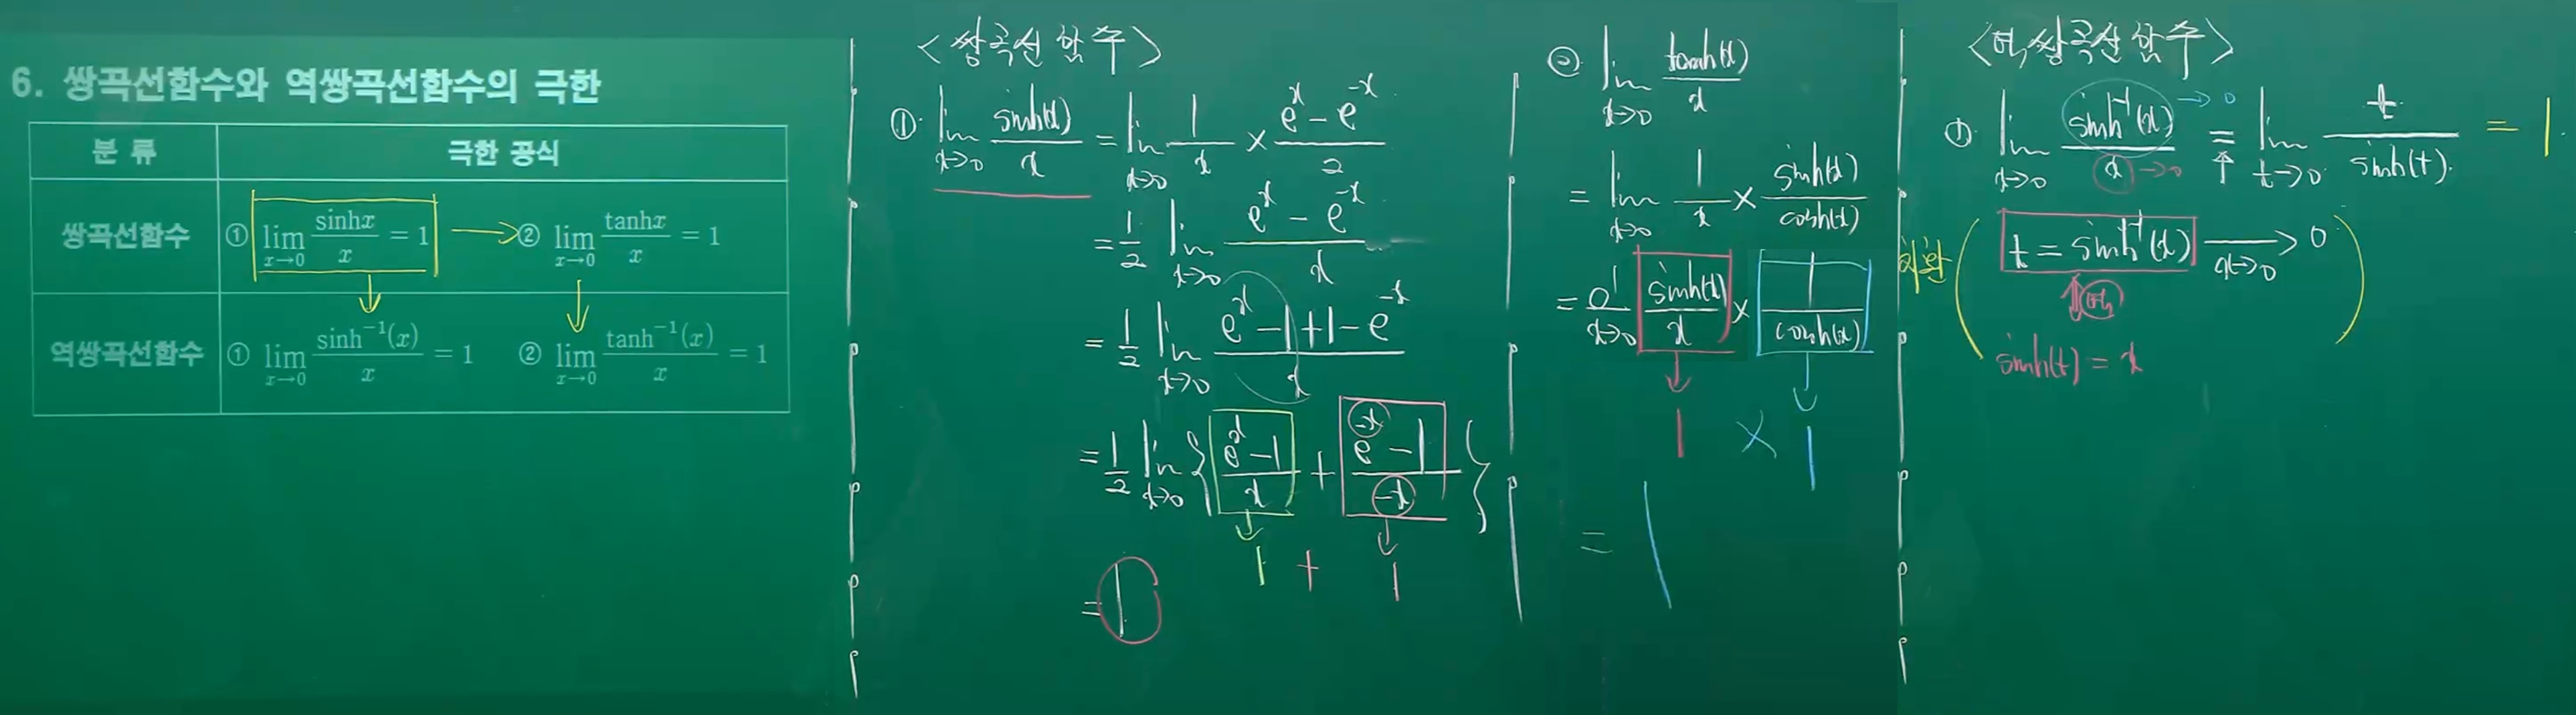 6. 쌍곡선함수와 역쌍곡선함수의 극한
분 류 극한 공식
쌍곡선함수 ① lim_{x→0} sinhx/x = 1 → ② lim_{x→0} tanhx/x = 1
역쌍곡선함수 ① lim_{x→0} sinh⁻¹(x)/x = 1 ② lim_{x→0} tanh⁻¹(x)/x = 1
<쌍곡선 함수>
①. lim_{x→0} sinh(x)/x = lim_{x→0} 1/x × (e^x - e^{-x})/2
= 1/2 lim_{x→0} (e^x - e^{-x})/x
= 1/2 lim_{x→0} (e^x - 1 + 1 - e^{-x})/x
= 1/2 lim_{x→0} { (e^x - 1)/x + (e^{-x} - 1)/(-x) }
1 + 1
= 1
② lim_{x→0} tanh(x)/x
= lim_{x→0} 1/x × sinh(x)/cosh(x)
= lim_{x→0} sinh(x)/x × 1/cosh(x)
1 × 1
= 1
<역쌍곡선 함수>
① lim_{x→0} sinh⁻¹(x)/x = lim_{t→0} t/sinh(t) = 1
→ 0
→ 0
치환 ( t = sinh⁻¹(x) →_{x→0} 0 )
sinh(t) = x